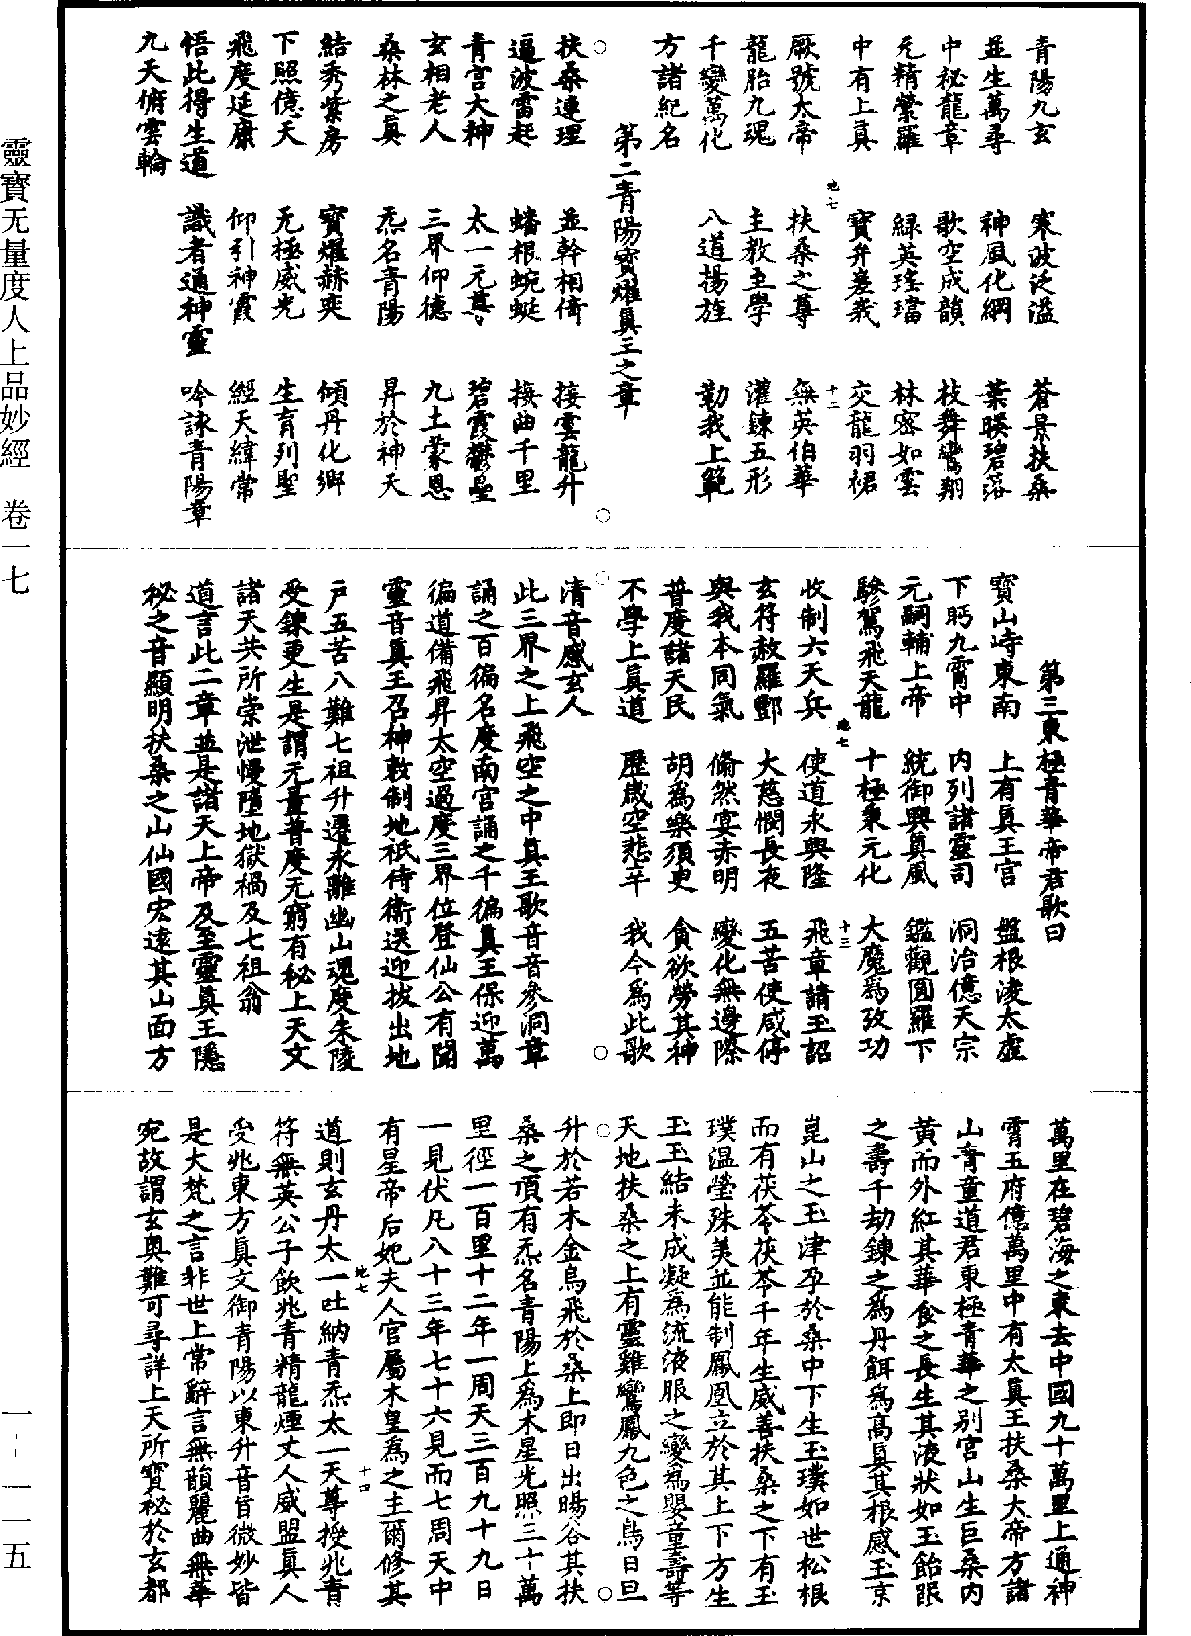 靈寶无量度人上品妙經　卷一七
一－一一五
青陽九玄　寒波泛溢　蒼景扶桑
並生萬尋　神風化綱　葉暎碧落
中秘龍章　歌空成韻　枝舞鸞翔
元精縈羅　綠英瑤璫　林密如雲
中有上真　寶弁嵳峩　交龍羽裙
地七　十二
厥號太帝　扶桑之尊　無英伯華
龍胎九魂　主教至學　灌鍊五形
千變萬化　八道揚旌　勤我上範
方諸紀名
第二青陽寶燿真王之章
扶桑連理　並幹相倚　接雲龍升
逼波雷起　蟠根蜿蜒　接曲千里
青宮大神　太一元尊　碧霞鬱壘
玄相老人　三界仰德　九土蒙恩
桑林之真　炁名青陽　昇於神天
結秀紫房　寶燿赫奕　傾丹化鄉
下照億天　无極威光　生育列聖
飛度延康　仰引神霞　經天緯常
悟此得生道　識者通神靈　吟詠青陽章
九天俯雲輪
第三東極青華帝君歌曰
寶山峙東南　上有真王宮　盤根凌太虛
下眄九霄中　內列諸靈司　洞治億天宗
元嗣輔上帝　統御興真風　鑑觀圓羅下
驂駕飛天龍　十極秉元化　大魔為攷功
地七　十三
收制六天兵　使道永興隆　飛章請玉詔
玄符赦羅酆　大慈憫長夜　五苦使咸停
與我本同氣　翛然宴赤明　變化無邊際
普度諸天民　胡為樂須臾　貪欲勞其神
不學上真道　歷歲空悲辛　我今為此歌
清音感玄人
此三界之上飛空之中真王歌音音參洞章
誦之百徧名度南宮誦之千徧真王保迎萬
徧道備飛昇太空過度三界位登仙公有聞
靈音真王召神敕制地祇侍衞送迎拔出地
戶五苦八難七祖升遷永離幽山魂度朱陵
受鍊更生是謂无量普度无窮有秘上天文
諸天共所崇泄慢墮地獄禍及七祖翁
道言此二章並是諸天上帝及至靈真王隱
秘之音顯明扶桑之山仙國宏遠其山面方
萬里在碧海之東去中國九十萬里上通神
霄玉府億萬里中有太真王扶桑大帝方諸
山青童道君東極青華之別宮山生巨桑內
黃而外紅其華食之長生其液狀如玉飴服
之壽千劫鍊之為丹餌為高真其根感玉京
崑山之玉津孕於桑中下生玉璞如世松根
而有茯苓茯苓千年生威善扶桑之下有玉
璞温瑩殊美並能制鳳凰立於其上下方生
玉玉結未成凝為流液服之變為嬰童壽等
天地扶桑之上有靈雞鸞鳳九色之鳥日旦
升於若木金烏飛於桑上即日出暘谷其扶
桑之頂有炁名青陽上為木星光照三十萬
里徑一百里十二年一周天三百九十九日
一見伏凡八十三年七十六見而七周天中
有星帝后妃夫人官屬木皇為之主爾修其
地七　十四
道則玄丹太一吐納青炁太一天尊授兆青
符無英公子飲兆青精龍煙丈人咸盟真人
受兆東方真文御青陽以東升音旨微妙皆
是大梵之言非世上常辭言無韻麗曲無華
宛故謂玄奧難可尋詳上天所寶秘於玄都